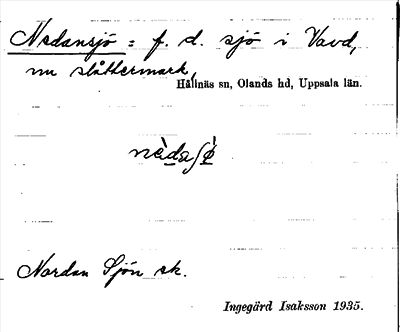 Nedansjö = f. d. sjö i Vavd,
nu slåttermark,
Hållnäs sn, Olands hd, Uppsala län.
nèdaʃø̀
Nordan Sjön sk.
Ingegärd Isaksson 1935.